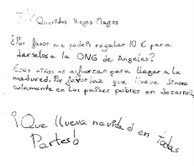 Queridos Reyes Magos
¿Por favor me podéis regalar 10 € para
darselosa la ONG de Angeles?
Esos niños se esfuerzan para llegar a la
madured. Por favor haz que llueva
solamente en los países pobres en desarroll
¡Que llueva navidad en todas
Partes!